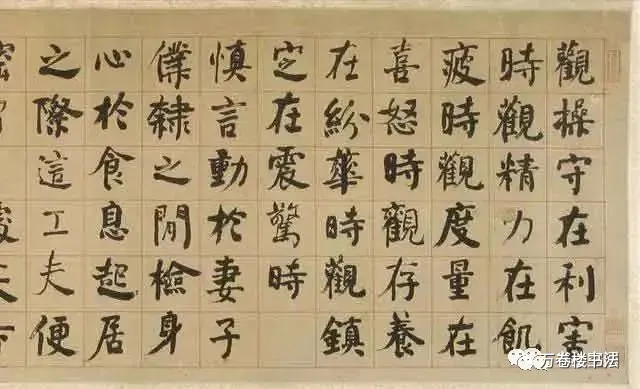 觀操守在利害
時觀精力在飢
疲時觀度量在
喜怒時觀存養
在紛華時觀鎮
定在震驚時
慎言動於妻子
僕隸之閒檢身
心於食息起居
之際這工夫便
万卷楼书法